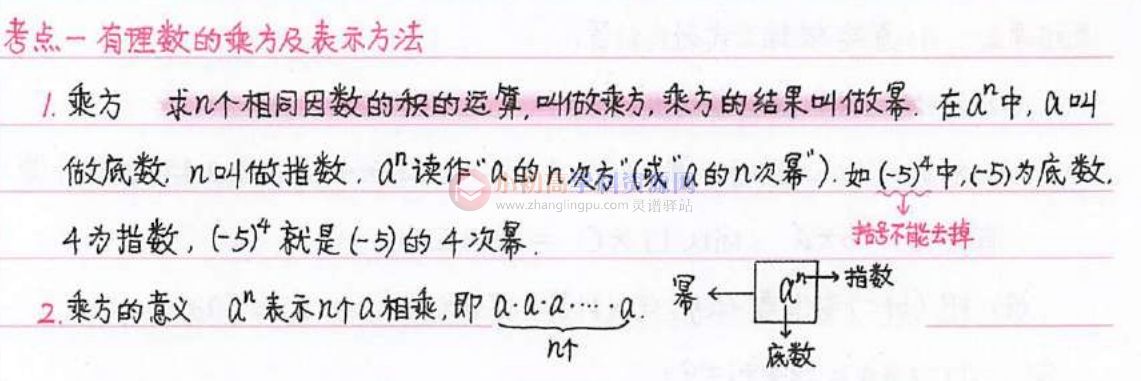 考点一 有理数的乘方及表示方法
1. 乘方 求n个相同因数的积的运算,叫做乘方,乘方的结果叫做幂. 在aⁿ中, a叫
做底数, n叫做指数. aⁿ读作"a的n次方"(或"a的n次幂"). 如(-5)⁴中,(-5)为底数,
www.zhanglingpu.com 灵谱驿站
4为指数, (-5)⁴就是(-5)的4次幂.
括号不能去掉
2. 乘方的意义 aⁿ表示n个a相乘,即 a·a·a·…·a.
n个
幂 ← aⁿ → 指数
↓
底数